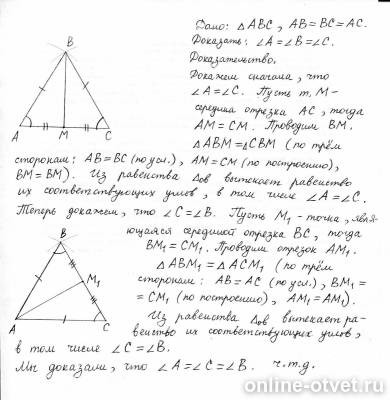 Дано: △ABC, AB=BC=AC.
Доказать: ∠A=∠B=∠C.
Доказательство.
Докажем сначала, что
∠A=∠C. Пусть т. M-
середина отрезка AC, тогда
AM=CM. Проводим BM.
△ABM=△CBM (по трём
сторонам: AB=BC (по усл.), AM=CM (по построению),
BM=BM). Из равенства △ов вытекает равенство
их соответствующих углов, в том числе ∠A=∠C.
Теперь докажем, что ∠C=∠B. Пусть M₁-точка, явля-
ющаяся серединой отрезка BC, тогда
BM₁=CM₁. Проводим отрезок AM₁.
△ABM₁=△ACM₁ (по трём
сторонам: AB=AC (по усл.), BM₁=
=CM₁ (по построению), AM₁=AM₁).
Из равенства △ов вытекает ра-
венство их соответствующих углов,
в том числе ∠C=∠B.
Мы доказали, что ∠A=∠C=∠B. ч.т.д.
B
A M C
B
M₁
A C
online-otvet.ru